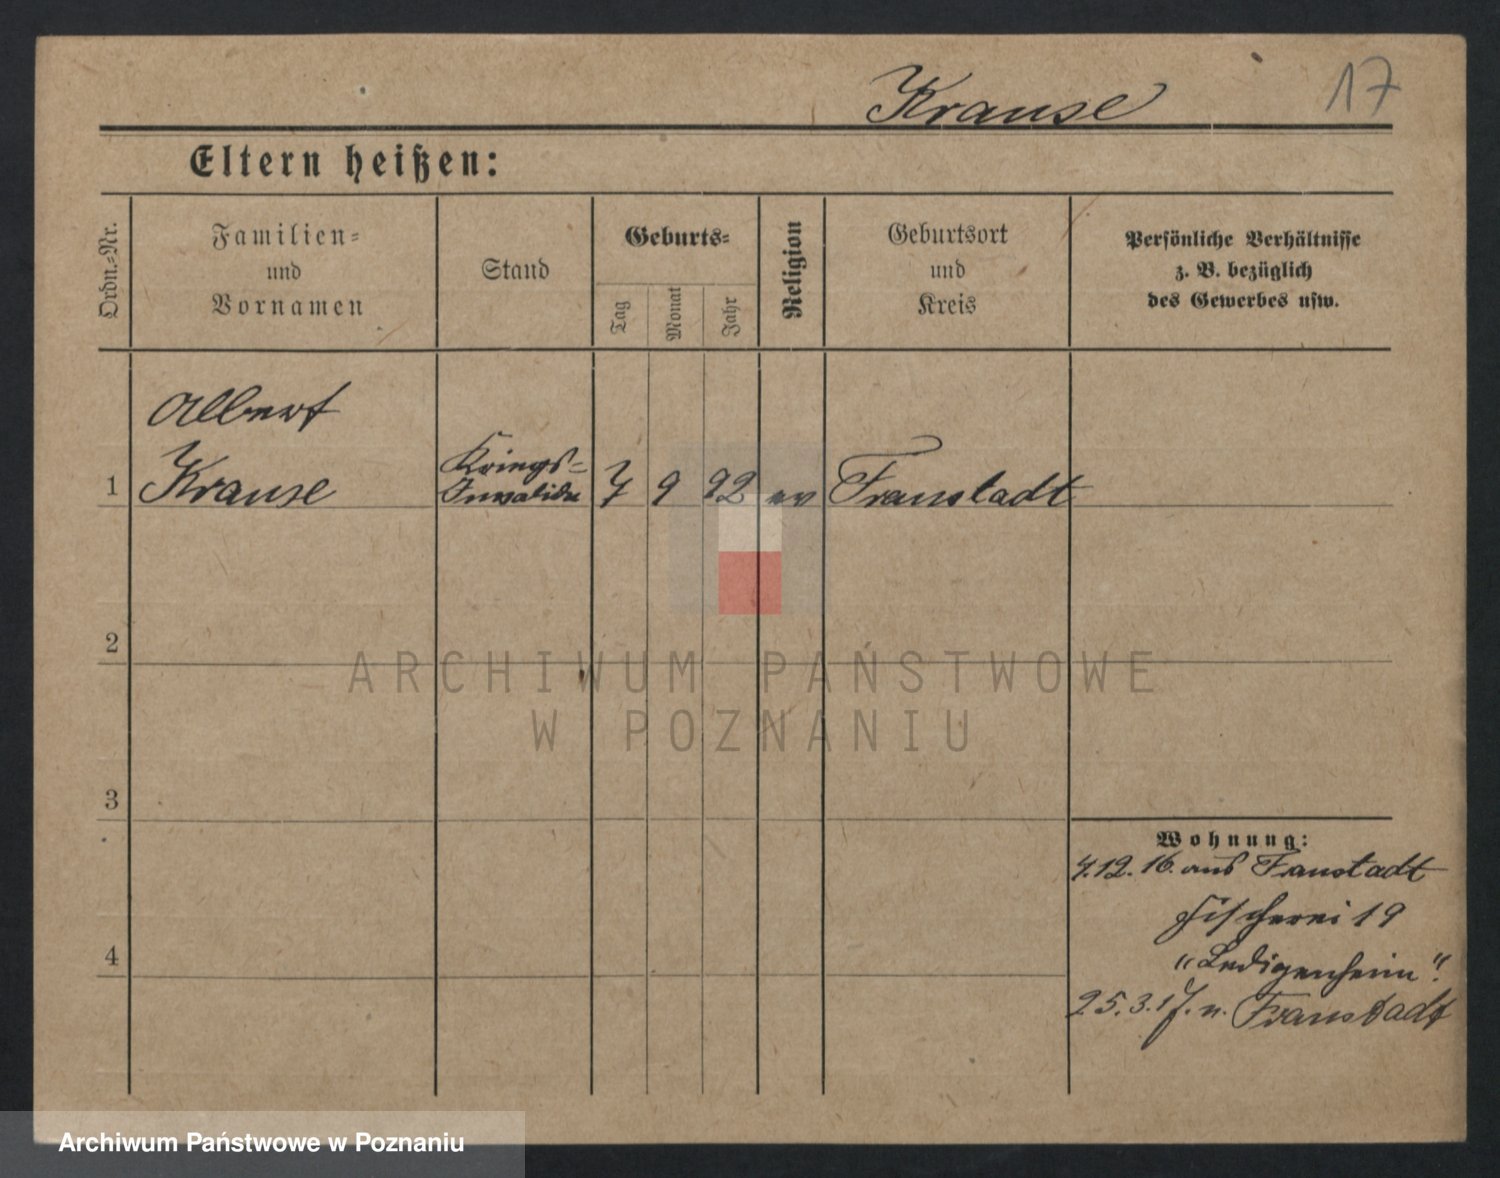 Krause 17
Eltern heißen:
Ordn.-Nr.
Familien-
und
Vornamen
Stand
Geburts-
Tag
Monat
Jahr
Religion
Geburtsort
und
Kreis
Persönliche Verhältnisse
z. B. bezüglich
des Gewerbes usw.
Albert
1 Krause
Kriegs-
Invalide
7 9 92 ev Fraustadt
2
3
4
Wohnung:
4.12.16. aus Fraustadt
Fischerei 19
"Ledigenheim".
25.3.17. n. Fraustadt
ARCHIWUM PAŃSTWOWE
W POZNANIU
Archiwum Państwowe w Poznaniu